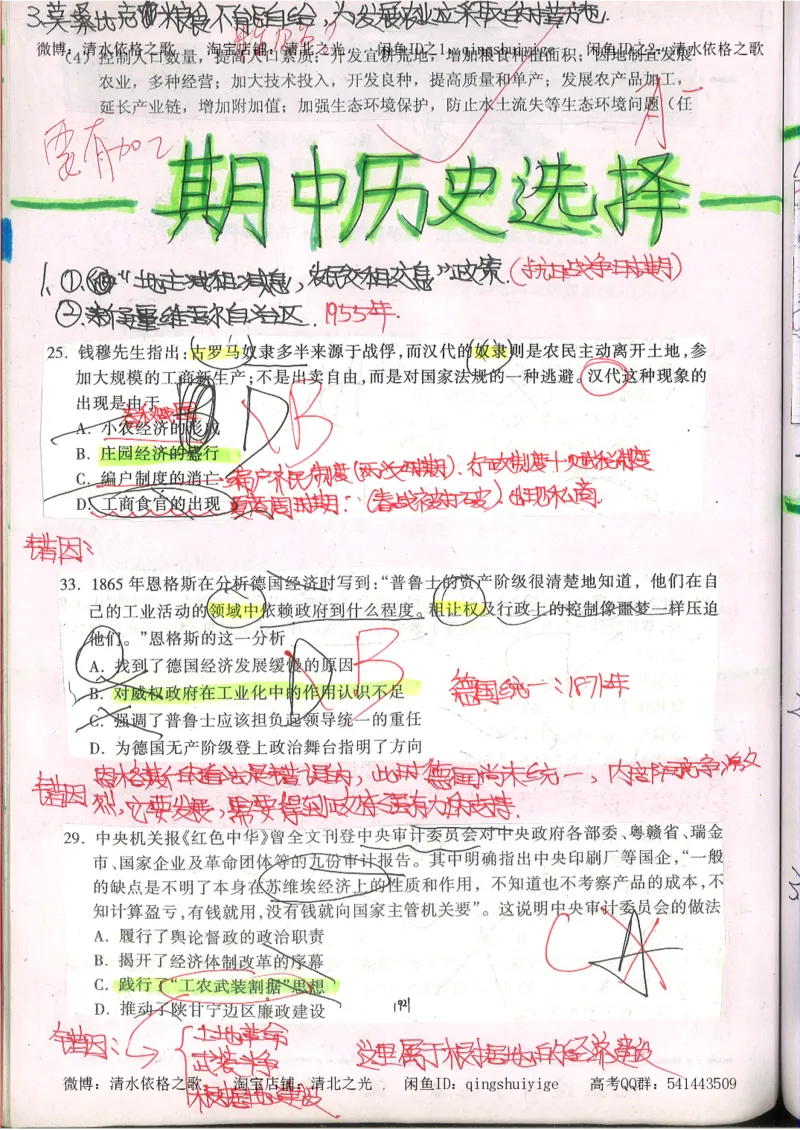 3.莫桑比克粮食不能自给,为发展农业应采取的措施.
微博:清水依格之歌 淘宝店铺:清北之光 闲鱼ID之1:qingshuiyige 闲鱼ID之2:清水依格之歌
(4)控制人口数量,提高人口素质;开发宜耕荒地,增加粮食种植面积;因地制宜发展
农业,多种经营;加大技术投入,开发良种,提高质量和单产;发展农产品加工,
延长产业链,增加附加值;加强生态环境保护,防止水土流失等生态环境问题(任
要有加工
期中历史选择
1. ①“地主减租减息,农民交租交息”政策.(抗日战争时期)
②新疆维吾尔自治区. 1955年.
25. 钱穆先生指出:古罗马奴隶多半来源于战俘,而汉代的奴隶则是农民主动离开土地,参
加大规模的工商新生产;不是出卖自由,而是对国家法规的一种逃避。汉代这种现象的
出现是由于
A. 小农经济的形成
B. 庄园经济的盛行
C. 编户制度的消亡 编户齐民制度(两汉时期).
D. 工商食官的出现 夏商周时期.(春战被打破)出现私商.
B
错因:
33. 1865年恩格斯在分析德国经济时写到:“普鲁士的资产阶级很清楚地知道,他们在自
己的工业活动的领域中依赖政府到什么程度。租让权及行政上的控制像噩梦一样压迫
他们。”恩格斯的这一分析
A. 找到了德国经济发展缓慢的原因
B. 对威权政府在工业化中的作用认识不足
C. 强调了普鲁士应该担负起领导统一的重任
D. 为德国无产阶级登上政治舞台指明了方向
B
德国统一:1871年
错因:恩格斯的看法是错误的,此时德国尚未统一,内部竞争激烈
,它要发展,需要得到政府强有力的支持.
29. 中央机关报《红色中华》曾全文刊登中央审计委员会对中央政府各部委、粤赣省、瑞金
市、国家企业及革命团体等的九份审计报告。其中明确指出中央印刷厂等国企,“一般
的缺点是不明了本身在苏维埃经济上的性质和作用,不知道也不考察产品的成本,不
知计算盈亏,有钱就用,没有钱就向国家主管机关要”。这说明中央审计委员会的做法
A. 履行了舆论督政的政治职责
B. 揭开了经济体制改革的序幕
C. 践行了“工农武装割据”思想
D. 推动了陕甘宁边区廉政建设
C A
错因:
土地革命
武装斗争
根据地建设
这里属于根据地的经济建设
微博:清水依格之歌 淘宝店铺:清北之光 闲鱼ID:qingshuiyige 高考QQ群:541443509